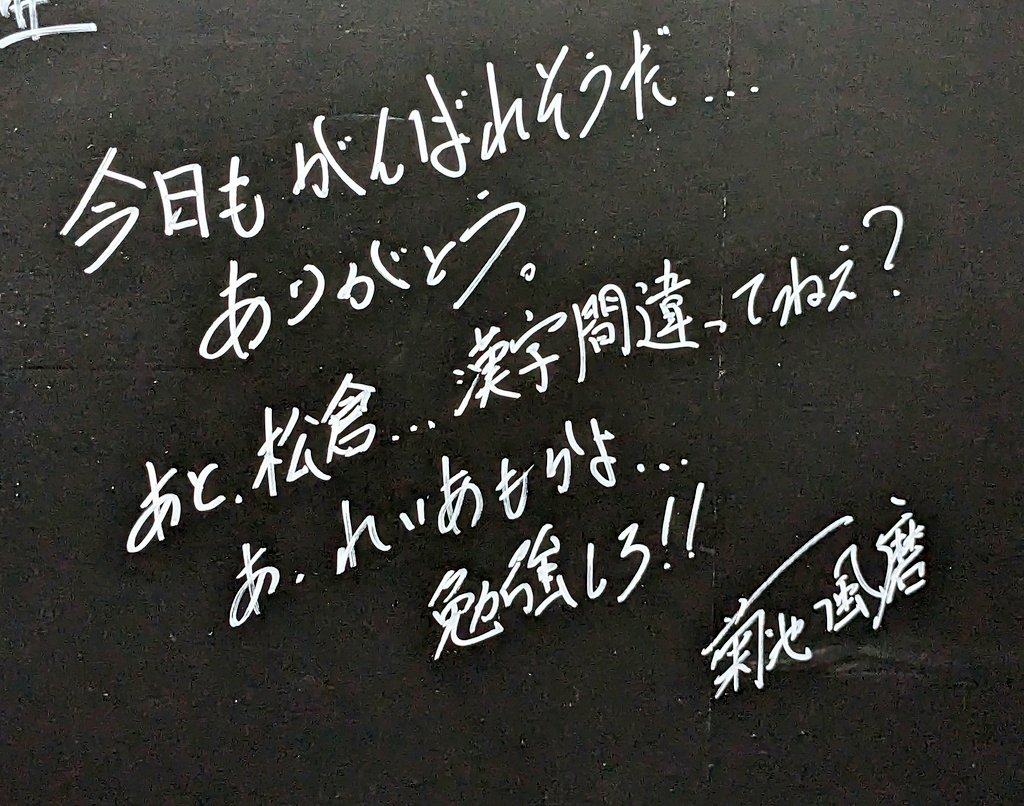 今日もがんばれそうだ...
ありがとう。
あと、松倉...漢字間違ってねえ?
あ、れいあもかよ...
勉強しろ!!
菊池風磨